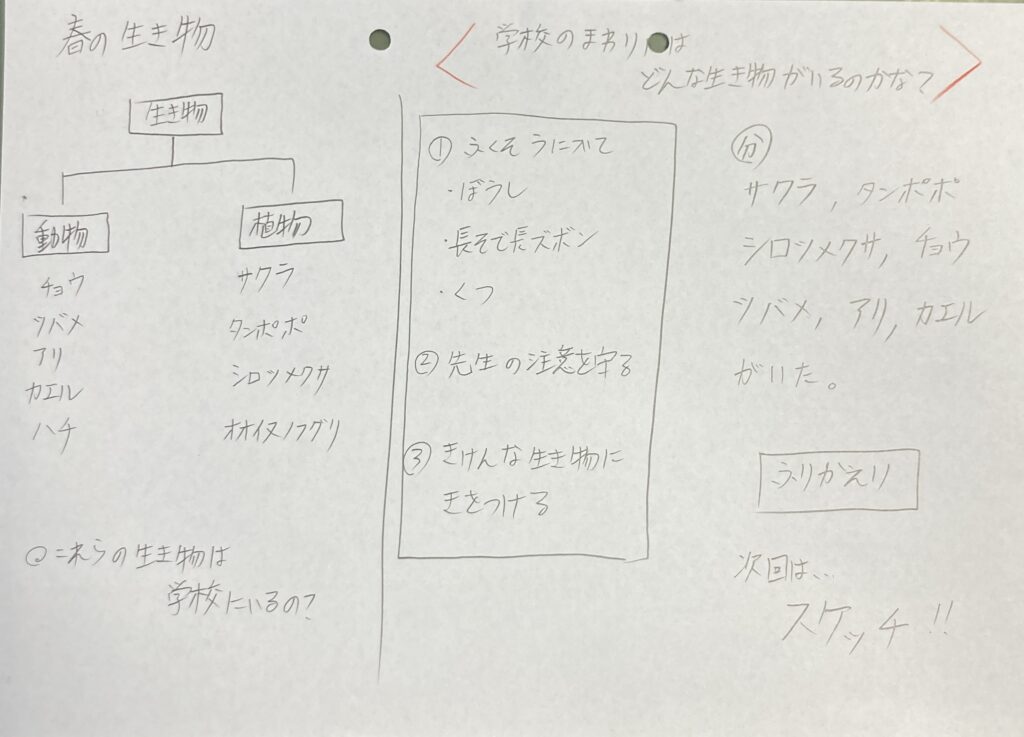 春の生き物
生き物
動物
チョウ
ツバメ
アリ
カエル
ハチ
植物
サクラ
タンポポ
シロツメクサ
オオイヌノフグリ
これらの生き物は
学校にいるの?
学校のまわりには
どんな生き物がいるのかなて
① ふくそうについて
・ぼうし
・長そで長ズボン
・くつ
② 先生の注意を守る
③ きけんな生き物に
きをつける
分
サクラ, タンポポ
シロツメクサ, チョウ
ツバメ, アリ, カエル
がいた。
ふりかえり
次回は...
スケッチ!!